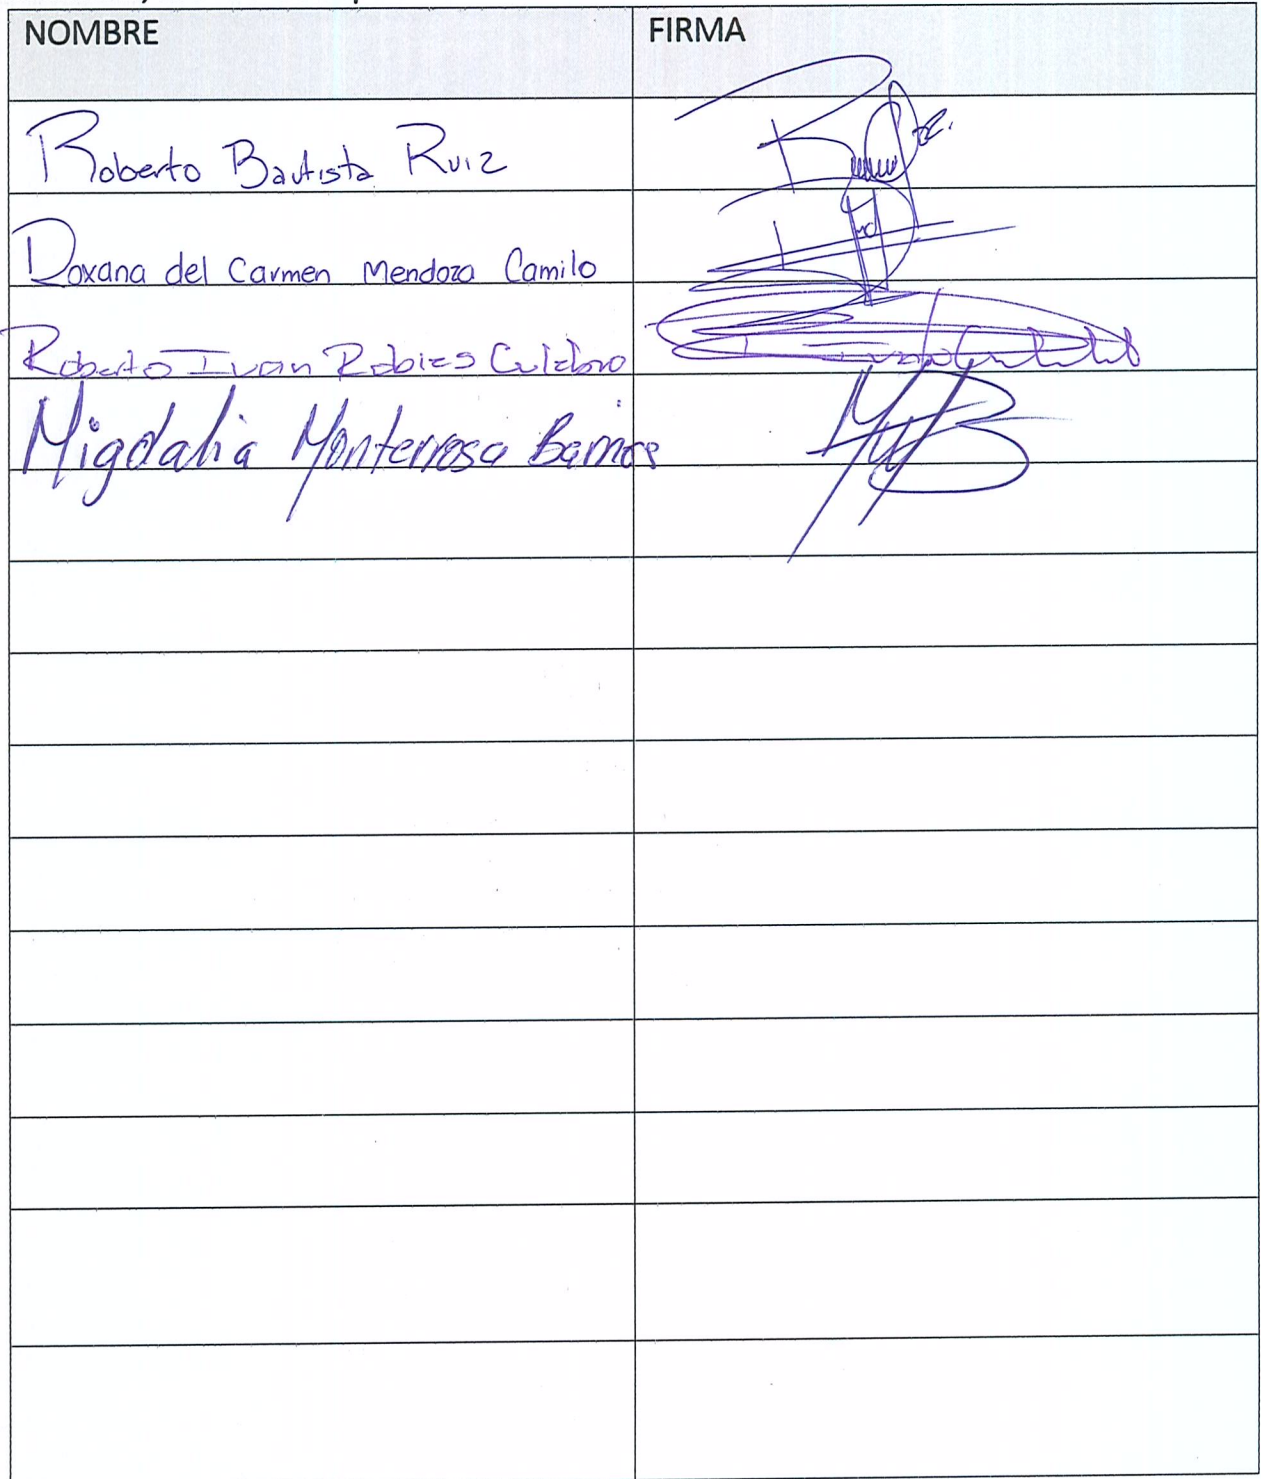 NOMBRE FIRMA
Roberto Bautista Ruiz
Roxana del Carmen Mendoza Camilo
Roberto Ivan Robles Culebro
Migdalia Monterrosa Barrios